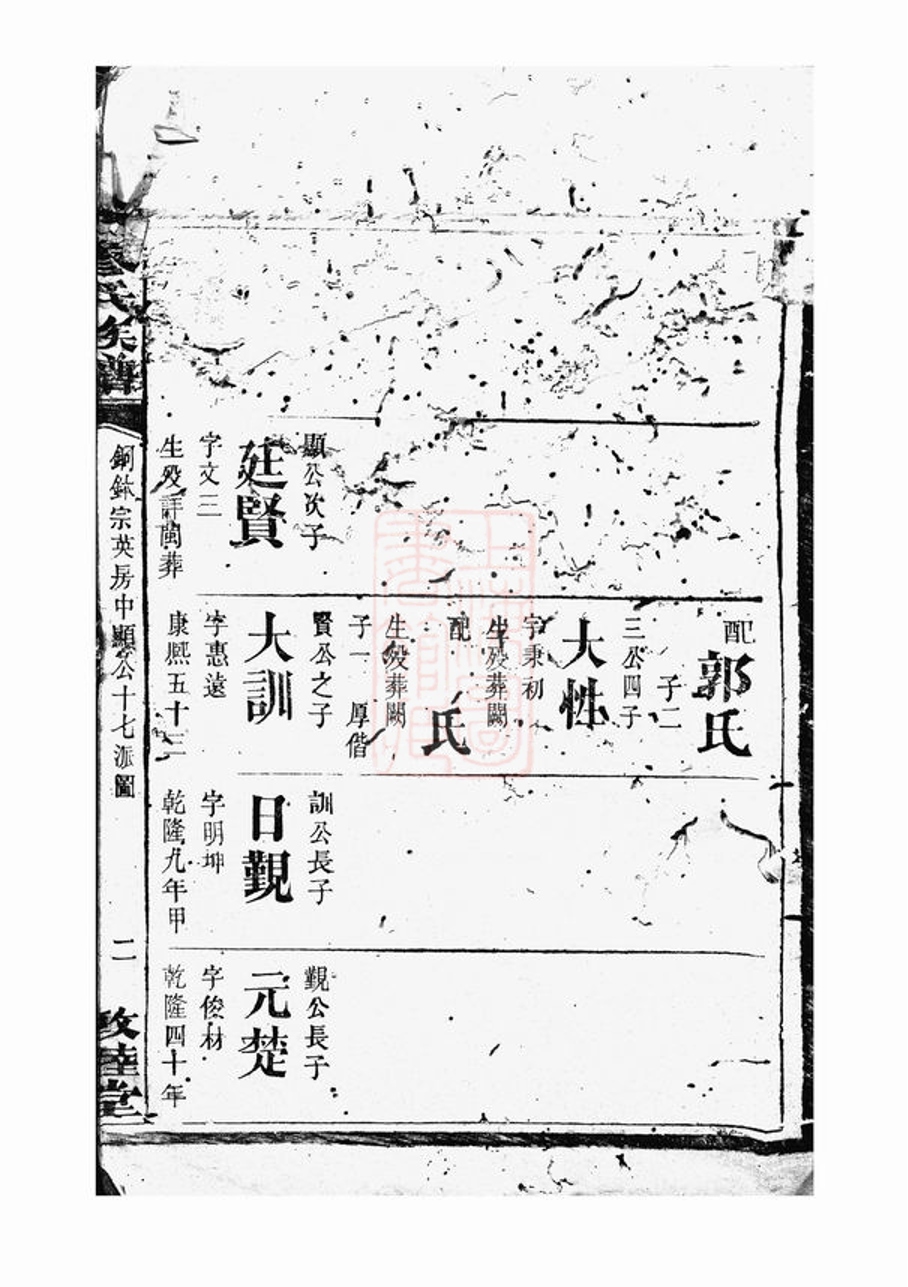 顯公次子
廷賢
字文三
生殁詳閩葬
配郭氏
子二
三公四子
大性
字秉初
生殁葬闕
配 氏
生殁葬闕
子一 厚偕
賢公之子
大訓
字惠遠
康熙五十三
訓公長子
日觀
字明坤
乾隆九年甲
觀公長子
元楚
字俊材
乾隆四十年
氏族譜
銅鉢宗英房中顯公十七派圖
二
敦睦堂
上海圖書館藏